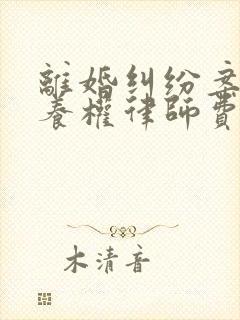 離婚糾纷
養權律師費
木清音